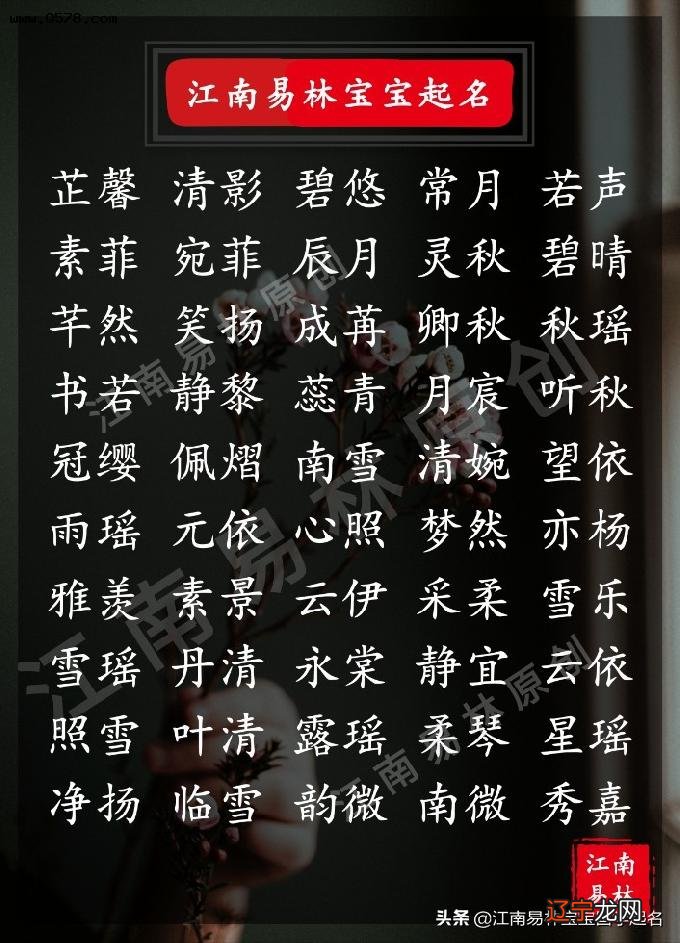 www.0578.com
江南易林宝宝起名
芷馨 清影 碧悠 常月 若声
素菲 宛菲 辰月 灵秋 碧晴
芊然 笑扬 成苒 卿秋 秋瑶
书若 静黎 蕊青 月宸 听秋
冠缨 佩熠 南雪 清婉 望依
雨瑶 元依 心照 梦然 亦杨
雅羡 素景 云伊 采柔 雪乐
雪瑶 丹清 永棠 静宜 云依
照雪 叶清 露瑶 柔琴 星瑶
净扬 临雪 韵微 南微 秀嘉
江南易林原创
江南易林原创
江南易林原创
江南
易林
头条 @江南易林宝宝起名
辽宁龙网